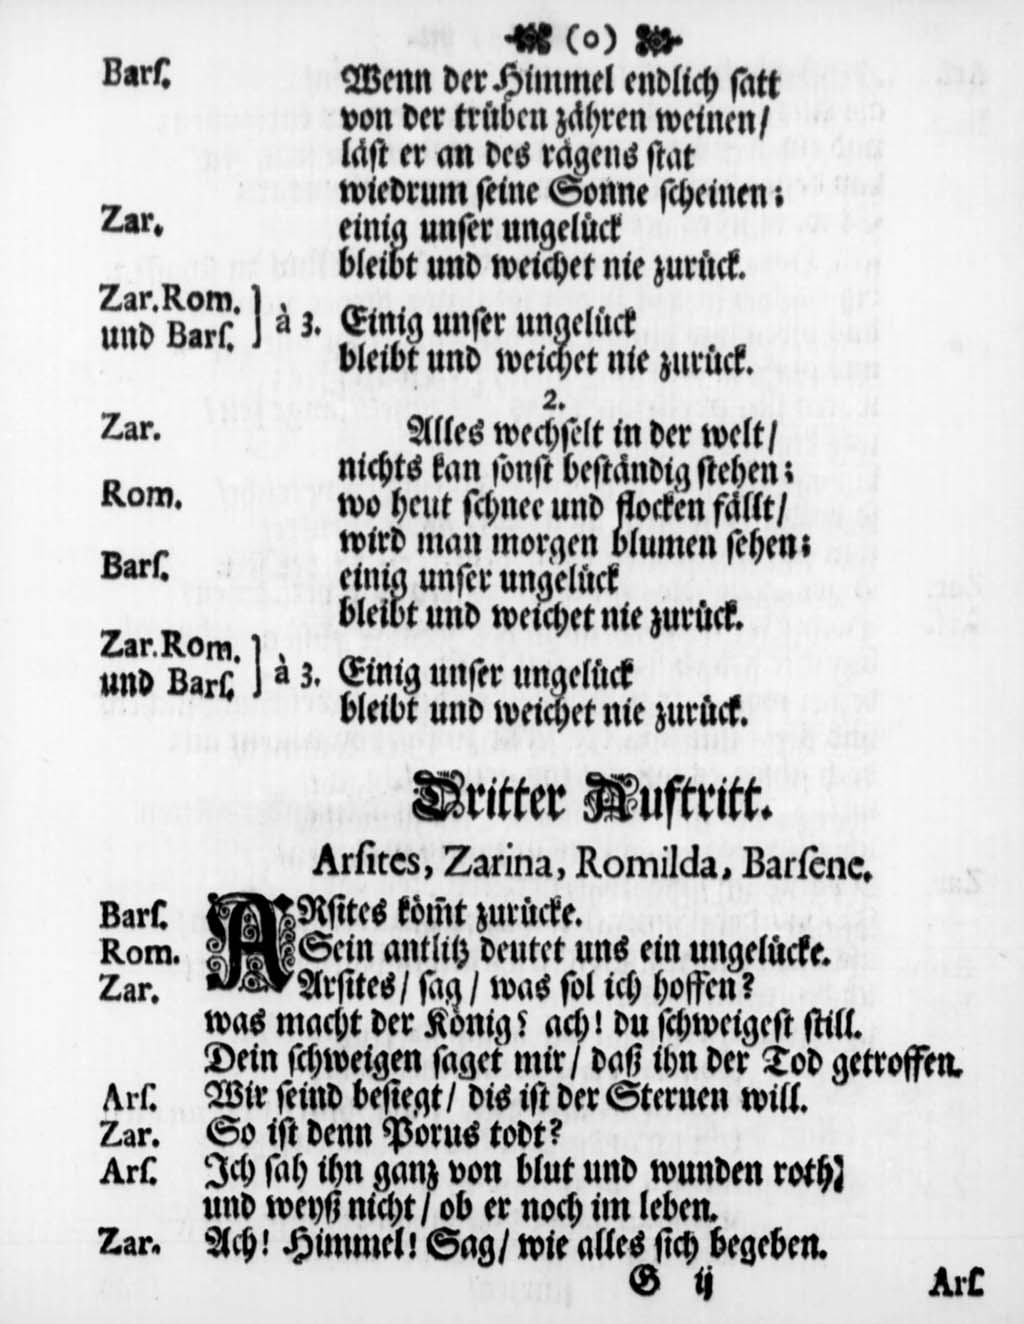 (o)
Barſ. Wenn der Himmel endlich ſatt
von der trüben zähren weinen/
läſt er an des rägens ſtat
wiedrum ſeine Sonne ſcheinen;
Zar. einig unſer ungelück
bleibt und weichet nie zurück.
Zar. Rom. und Barſ. ] à 3. Einig unſer ungelück
bleibt und weichet nie zurück.
2.
Zar. Alles wechſelt in der welt/
nichts kan ſonſt beſtändig ſtehen;
Rom. wo heut ſchnee und flocken fällt/
wird man morgen blumen ſehen;
Barſ. einig unſer ungelück
bleibt und weichet nie zurück.
Zar. Rom. und Barſ. ] à 3. Einig unſer ungelück
bleibt und weichet nie zurück.
Dritter Auftritt.
Arſites, Zarina, Romilda, Barſene.
Barſ. ARſites köm̃t zurücke.
Rom. Sein antlitz deutet uns ein ungelücke.
Zar. Arſites/ ſag/ was ſol ich hoffen?
was macht der König? ach! du ſchweigeſt ſtill.
Dein ſchweigen ſaget mir/ daß ihn der Tod getroffen.
Arſ. Wir ſeind beſiegt/ dis iſt der Sternen will.
Zar. So iſt denn Porus todt?
Arſ. Ich ſah ihn ganz von blut und wunden roth/
und weyß nicht/ ob er noch im leben.
Zar. Ach! Himmel! Sag/ wie alles ſich begeben.
G ij Arſ